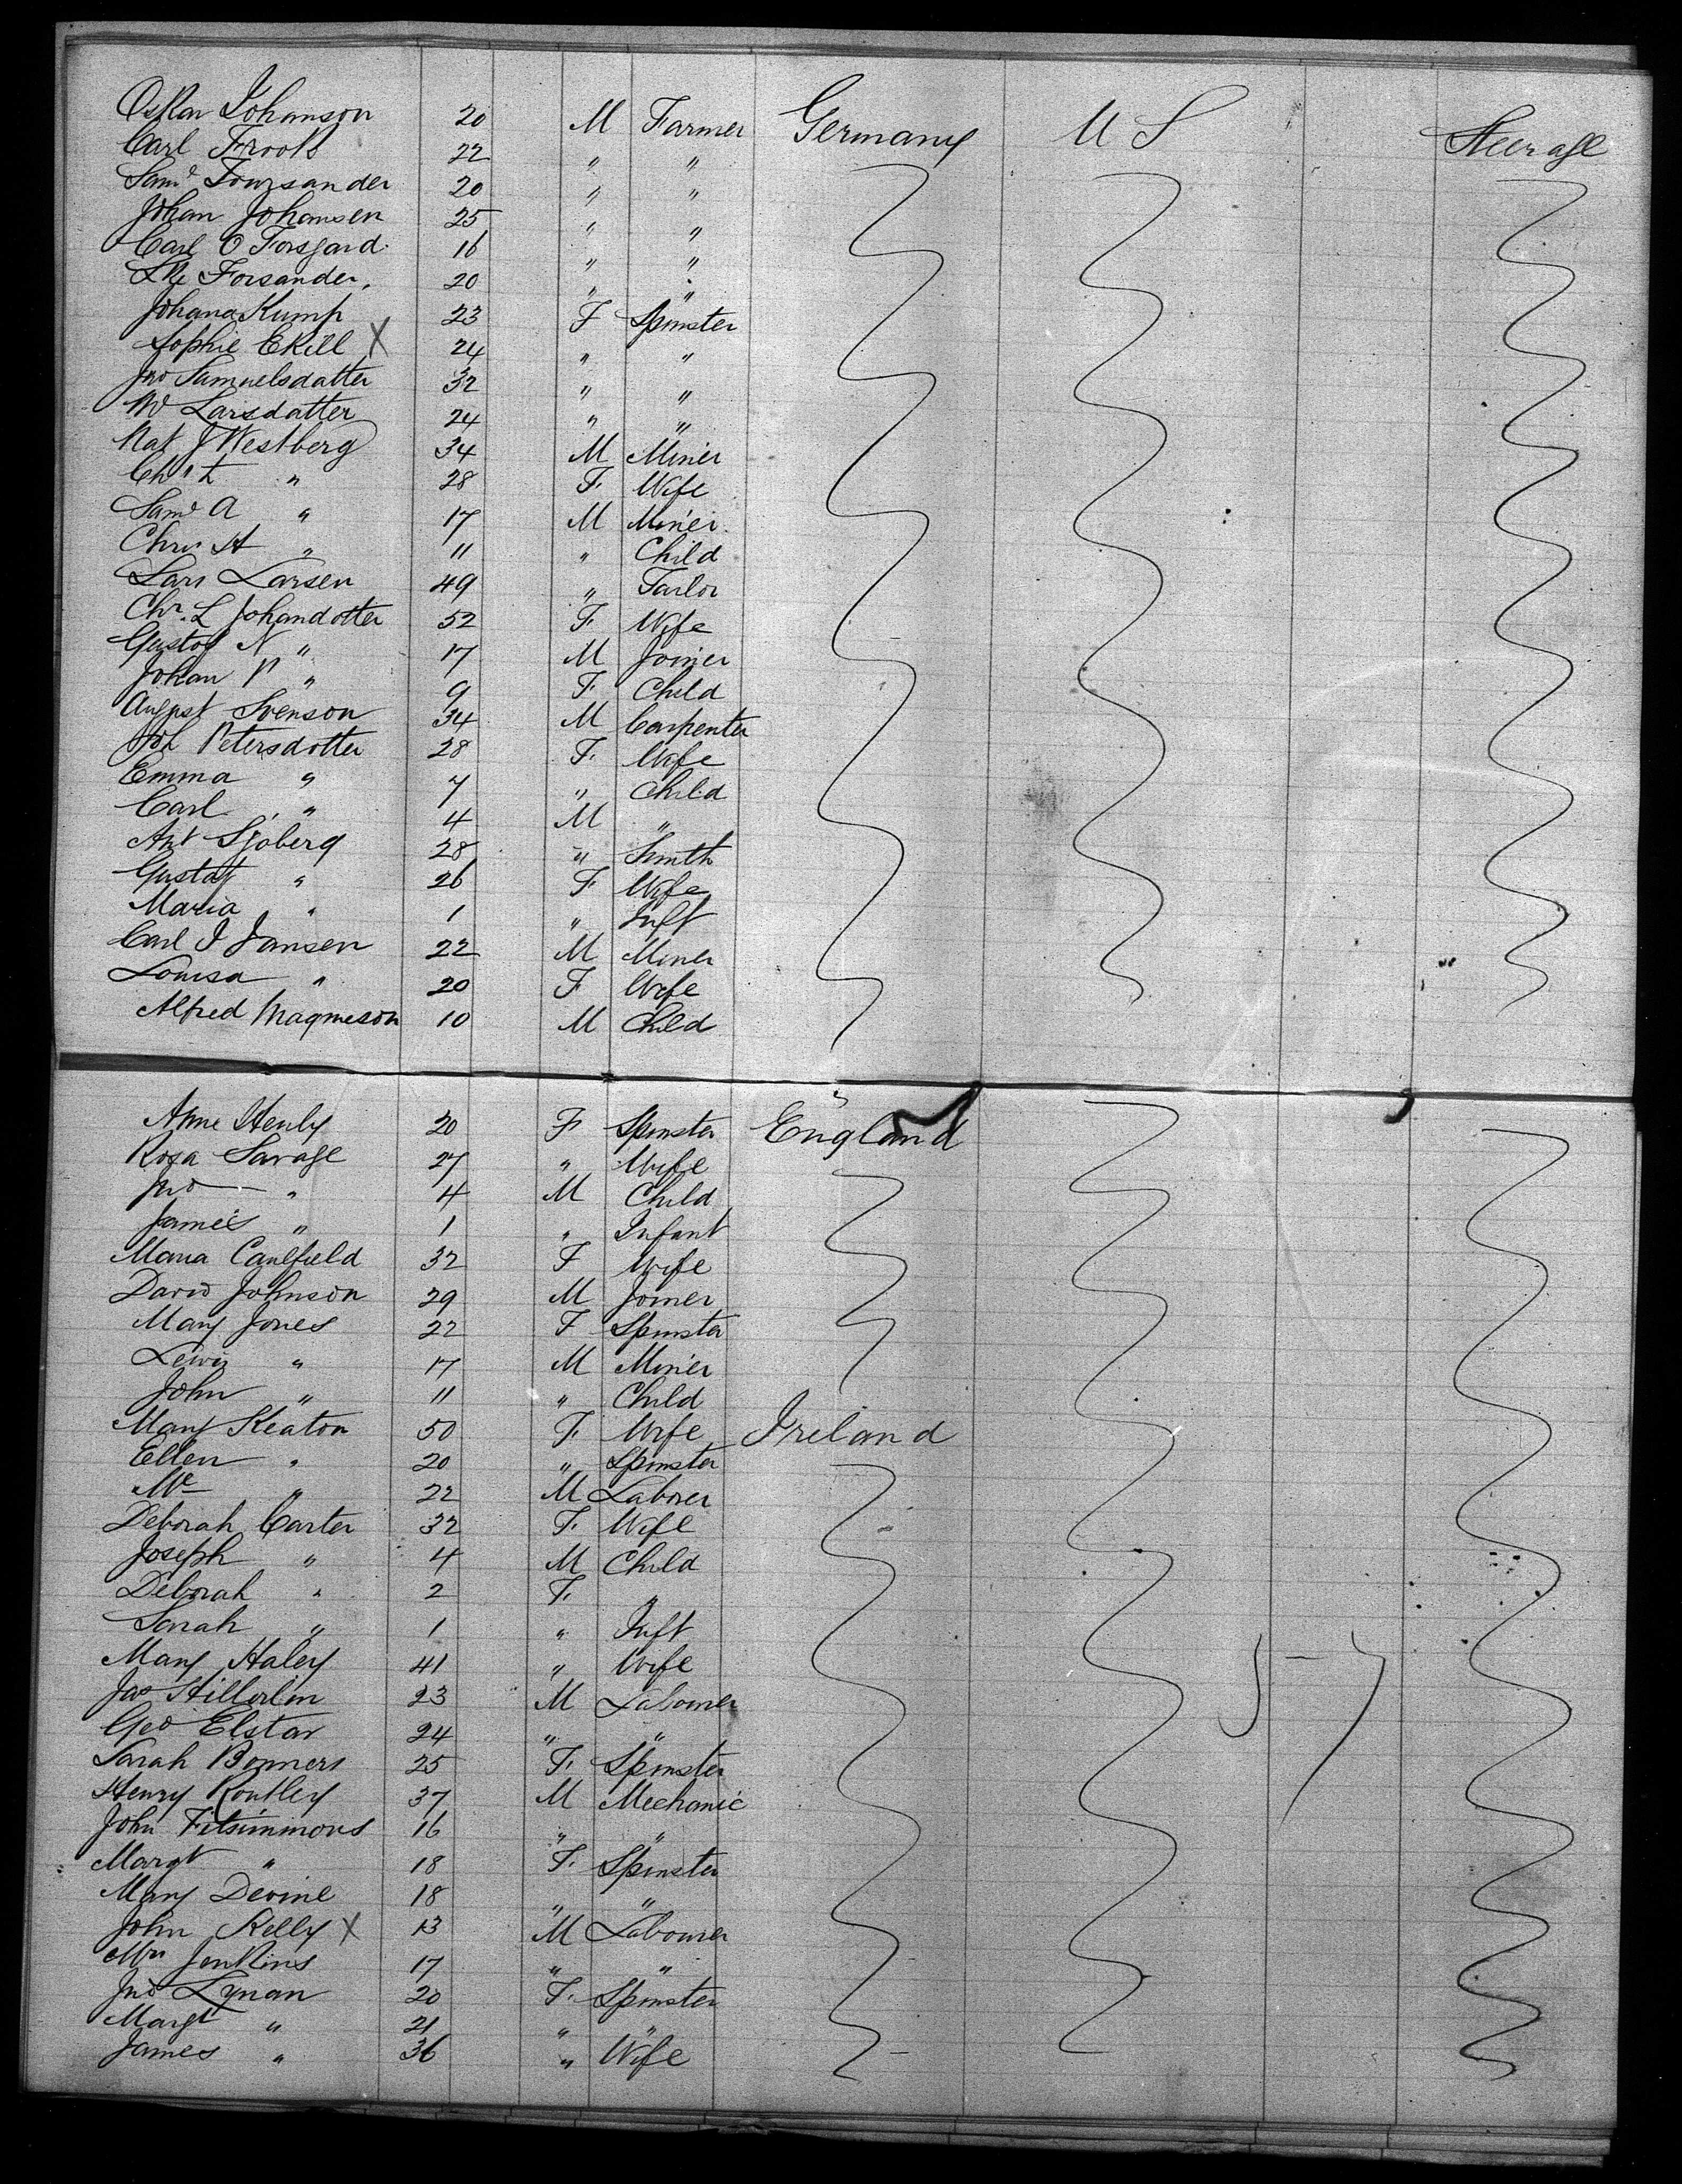 Oskar Johanson 20 M Farmer Germany U S Steerage
Carl 22 " "
Saml 20 " "
Johan Johansen 25 " "
Carl O Forsgard 16 " "
Forsander. 20 " "
Johana Kump 23 F Spinster
Sophie Ekill X 24 " "
Jno Samuelsdatter 32 " "
Larsdatter 24 " "
Nat J Westberg 34 M Miner
" 28 F. Wife
Saml A " 17 M Miner.
" 11 " Child
Lars Larsen 49 " Tailor
Chr. L Johandotter 52 F Wife
Gustof N " 17 M Joiner
Johan P " 9 F. Child
August Svenson 34 M Carpenter
Petersdotter 28 F. Wife
Emma " 7 " Child
Carl " 4 M "
Ant Sjoberg 28 " Smith
Gustaf " 26 F Wife
Maria " 1 " Inft
Carl J Jansen 22 M Miner
Louisa " 20 F Wife
Alfred Magneson 10 M Child
Anne Henly 20 F Spinster England
Rosa Savage 27 " Wife
Jno " 4 M Child
James " 1 " Infant
Maria Caulfield 32 F Wife
David Johnson 29 M Joiner
Mary Jones 22 F Spinster
Lewis " 17 M Miner
John " 11 " Child
Mary Keaton 50 F. Wife Ireland
Ellen " 20 " Spinster
Wm " 22 M Laborer
Deborah Carter 32 F. Wife
Joseph " 4 M Child
Deborah " 2 F. "
Sarah " 1 " Inft
Mary Haley 41 " Wife
Jas 23 M Labourer
Geo Elstar 24 " "
Sarah Bonners 25 F. Spinster
Henry Routley 37 M Mechanic
John Fitsimmons 16 " "
Margt " 18 F. Spinster
Mary Devine 18 " "
John Kelly X 13 M Labourer
Wm Jenkins 17 " "
Jno Lynan 20 F. Spinster
Margt " 21 " "
James " 36 " Wife
57